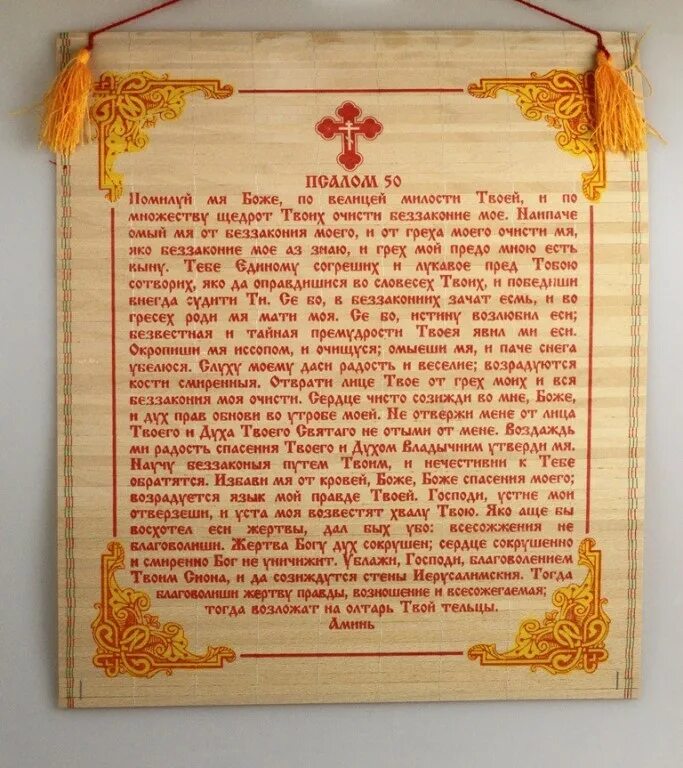 ПСАЛОМ 50
Помилуй мя Боже, по велицей милости Твоей, и по
множеству щедрот Твоих очисти беззаконие мое. Наипаче
омый мя от беззакония моего, и от греха моего очисти мя,
яко беззаконие мое аз знаю, и грех мой предо мною есть
выну. Тебе Единому согреших и лукавое пред Тобою
сотворих, яко да оправдишися во словесех Твоих, и победиши
внегда судити Ти. Се бо, в беззакониих зачат есмь, и во
гресех роди мя мати моя. Се бо, истину возлюбил еси;
безвестная и тайная премудрости Твоея явил ми еси.
Окропиши мя иссопом, и очищуся; омыеши мя, и паче снега
убелюся. Слуху моему даси радость и веселие; возрадуются
кости смиренныя. Отврати лице Твое от грех моих и вся
беззакония моя очисти. Сердце чисто созижди во мне, Боже,
и дух прав обнови во утробе моей. Не отвержи мене от лица
Твоего и Духа Твоего Святаго не отыми от мене. Воздаждь
ми радость спасения Твоего и Духом Владычним утверди мя.
Научу беззаконыя путем Твоим, и нечестивии к Тебе
обратятся. Избави мя от кровей, Боже, Боже спасения моего;
возрадуется язык мой правде Твоей. Господи, устне мои
отверзеши, и уста моя возвестят хвалу Твою. Яко аще бы
восхотел еси жертвы, дал бых убо: всесожжения не
благоволиши. Жертва Богу дух сокрушен; сердце сокрушенно
и смиренно Бог не уничижит. Ублажи, Господи, благоволением
Твоим Сиона, и да созиждутся стены Иерусалимския. Тогда
благоволиши жертву правды, возношение и всесожегаемая;
тогда возложат на олтарь Твой тельцы.
Аминь